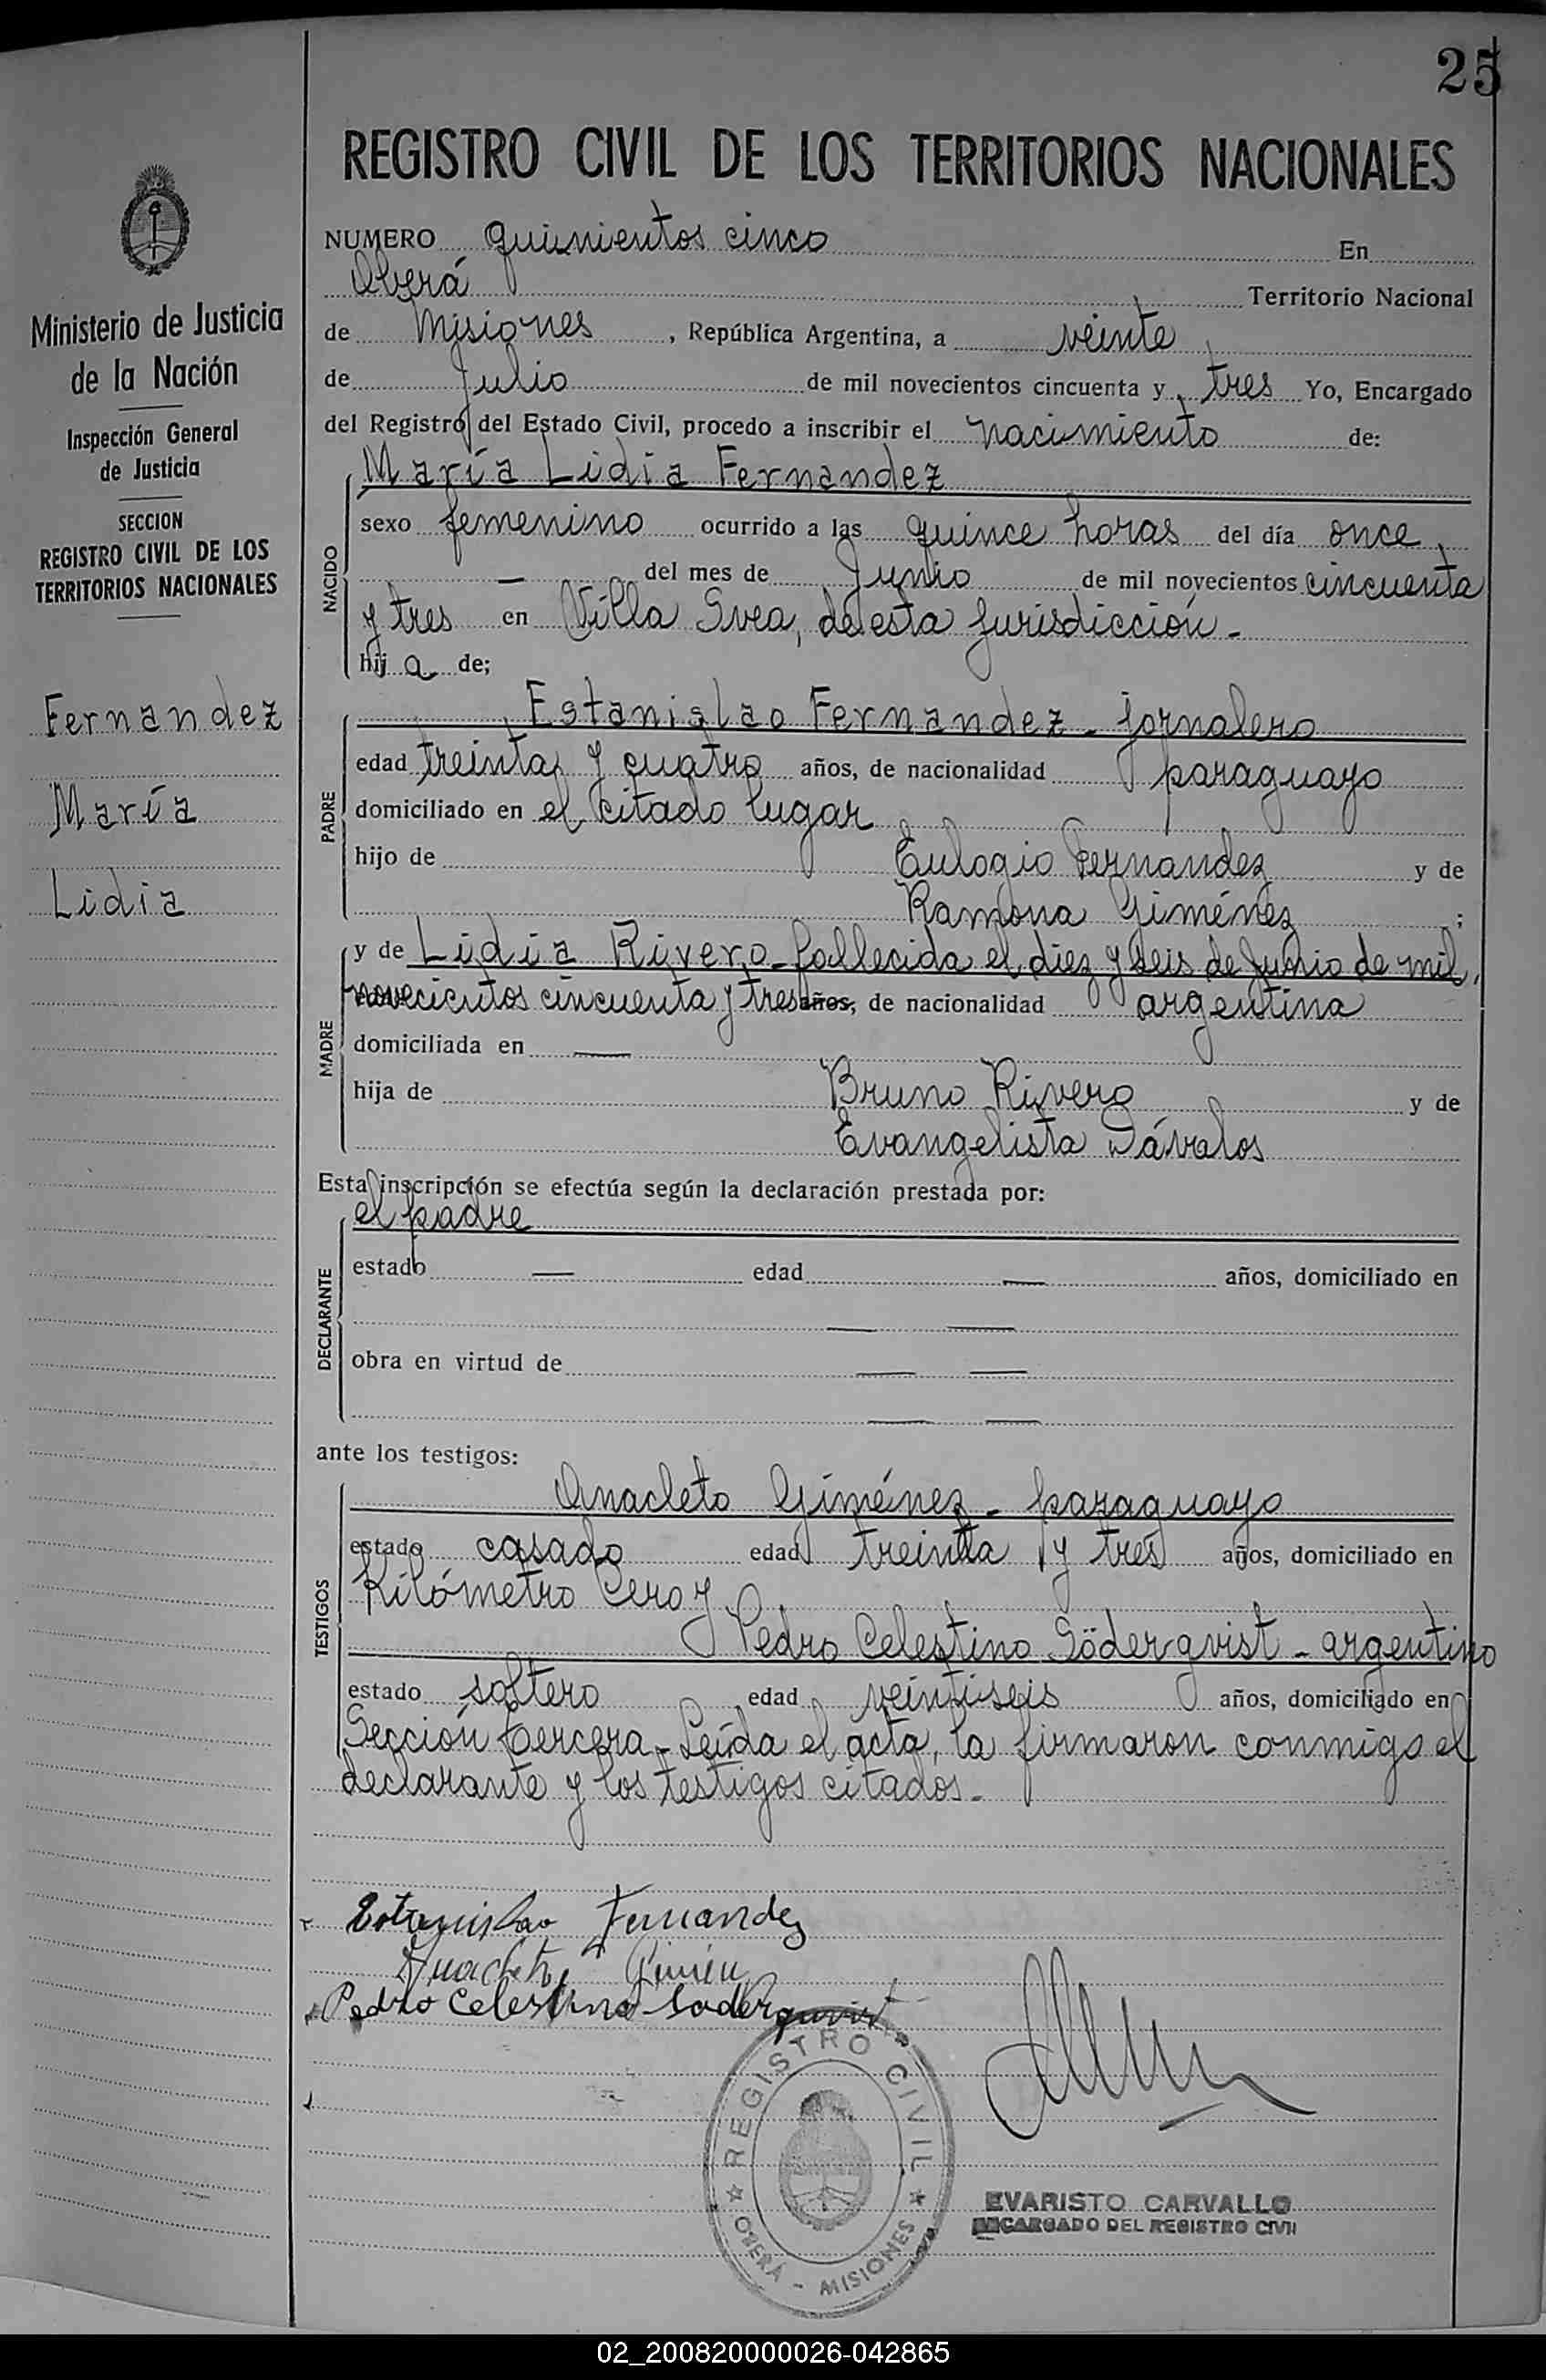 25
REGISTRO CIVIL DE LOS TERRITORIOS NACIONALES
Ministerio de Justicia
de la Nación
Inspección General
de Justicia
SECCION
REGISTRO CIVIL DE LOS
TERRITORIOS NACIONALES
Fernandez
María
Lidia
NUMERO quinientos cinco En
Oberá Territorio Nacional
de Misiones, República Argentina, a veinte
de Julio de mil novecientos cincuenta y tres Yo, Encargado
del Registro del Estado Civil, procedo a inscribir el nacimiento de:
NACIDO
María Lidia Fernandez
sexo femenino ocurrido a las quince horas del día once
— del mes de Junio de mil novecientos cincuenta
y tres en Villa Svea, de esta jurisdicción.-
hija de;
PADRE
Estanislao Fernandez - jornalero
edad treinta y cuatro años, de nacionalidad paraguayo
domiciliado en el citado lugar
hijo de Eulogio Fernandez y de
Ramona Giménez ;
MADRE
y de Lidia Rivero - fallecida el diez y seis de Junio de mil
novecientos cincuenta y tres años, de nacionalidad argentina
domiciliada en —
hija de Bruno Rivero y de
Evangelista Dávalos
Esta inscripción se efectúa según la declaración prestada por:
DECLARANTE
el padre
estado — edad — años, domiciliado en
— —
obra en virtud de — —
— —
ante los testigos:
TESTIGOS
Anacleto Giménez - paraguayo
estado casado edad treinta y tres años, domiciliado en
Kilómetro Cero y
Pedro Celestino Söderqvist - argentino
estado soltero edad veintiseis años, domiciliado en
Sección tercera.- Leída el acta, la firmaron conmigo el
declarante y los testigos citados.-
Estanislao Fernandez
Anacleto Gimen
Pedro Celestino Soderquist
REGISTRO CIVIL
OBERA - MISIONES
EVARISTO CARVALLO
ENCARGADO DEL REGISTRO CIVIL
02_200820000026-042865